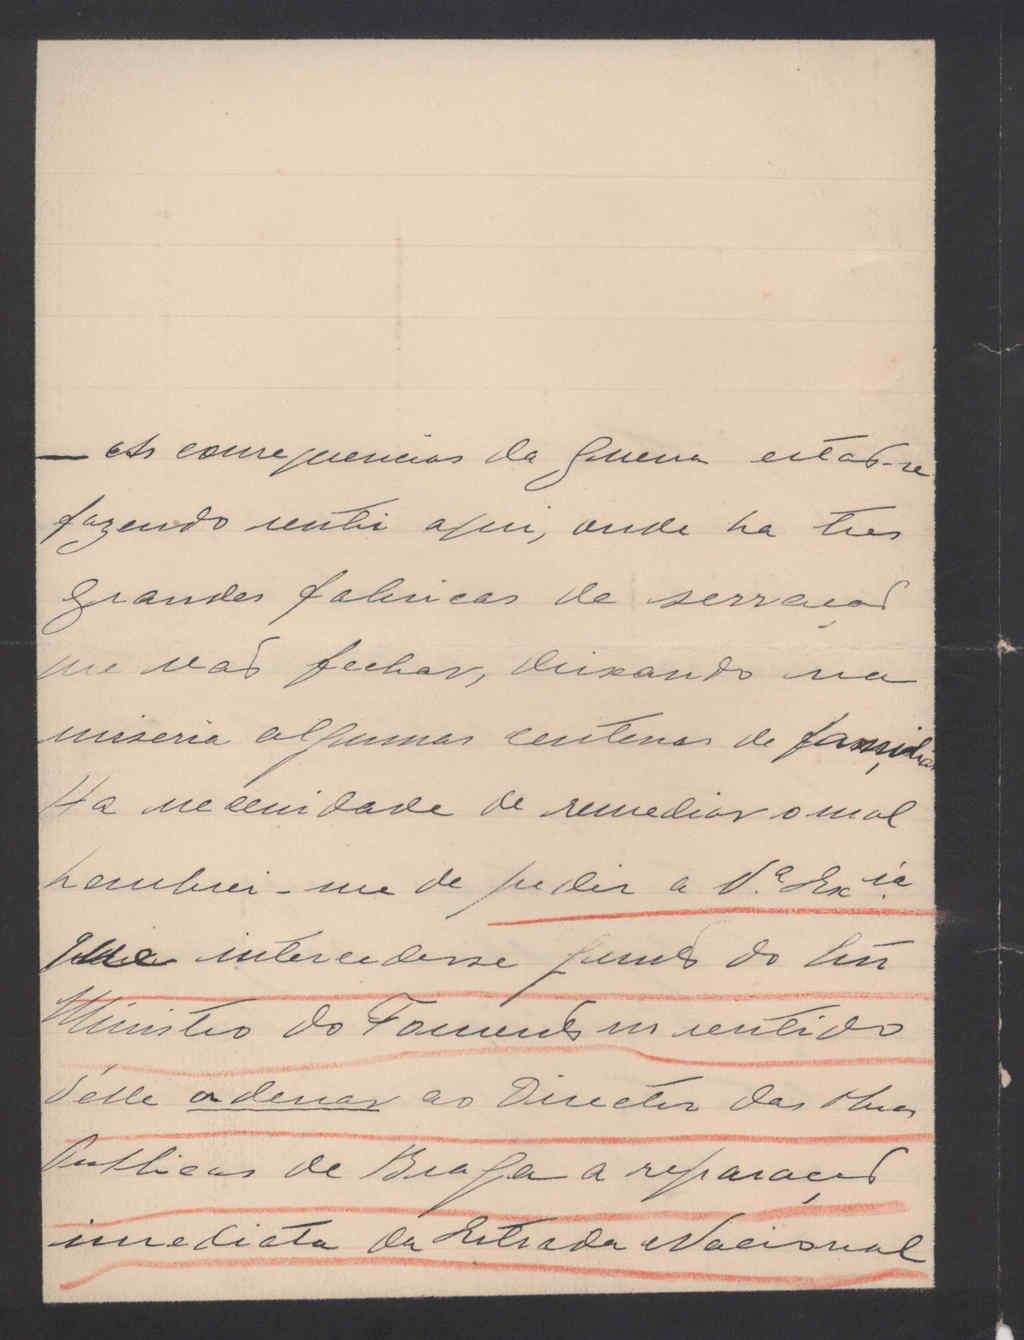 — As consequencias da Guerra estão-se
fazendo sentir aqui, onde ha tres
grandes fabricas de serração
que vão fechar, deixando na
miseria algumas centenas de familias
Ha necessidade de remediar o mal
Lembrei-me de pedir a V.ª Ex.cia
que intercedesse junto do Snr
Ministro do Fomento no sentido
d'elle ordenar ao Director das Obras
Publicas de Braga a reparação
imediata da Estrada Nacional